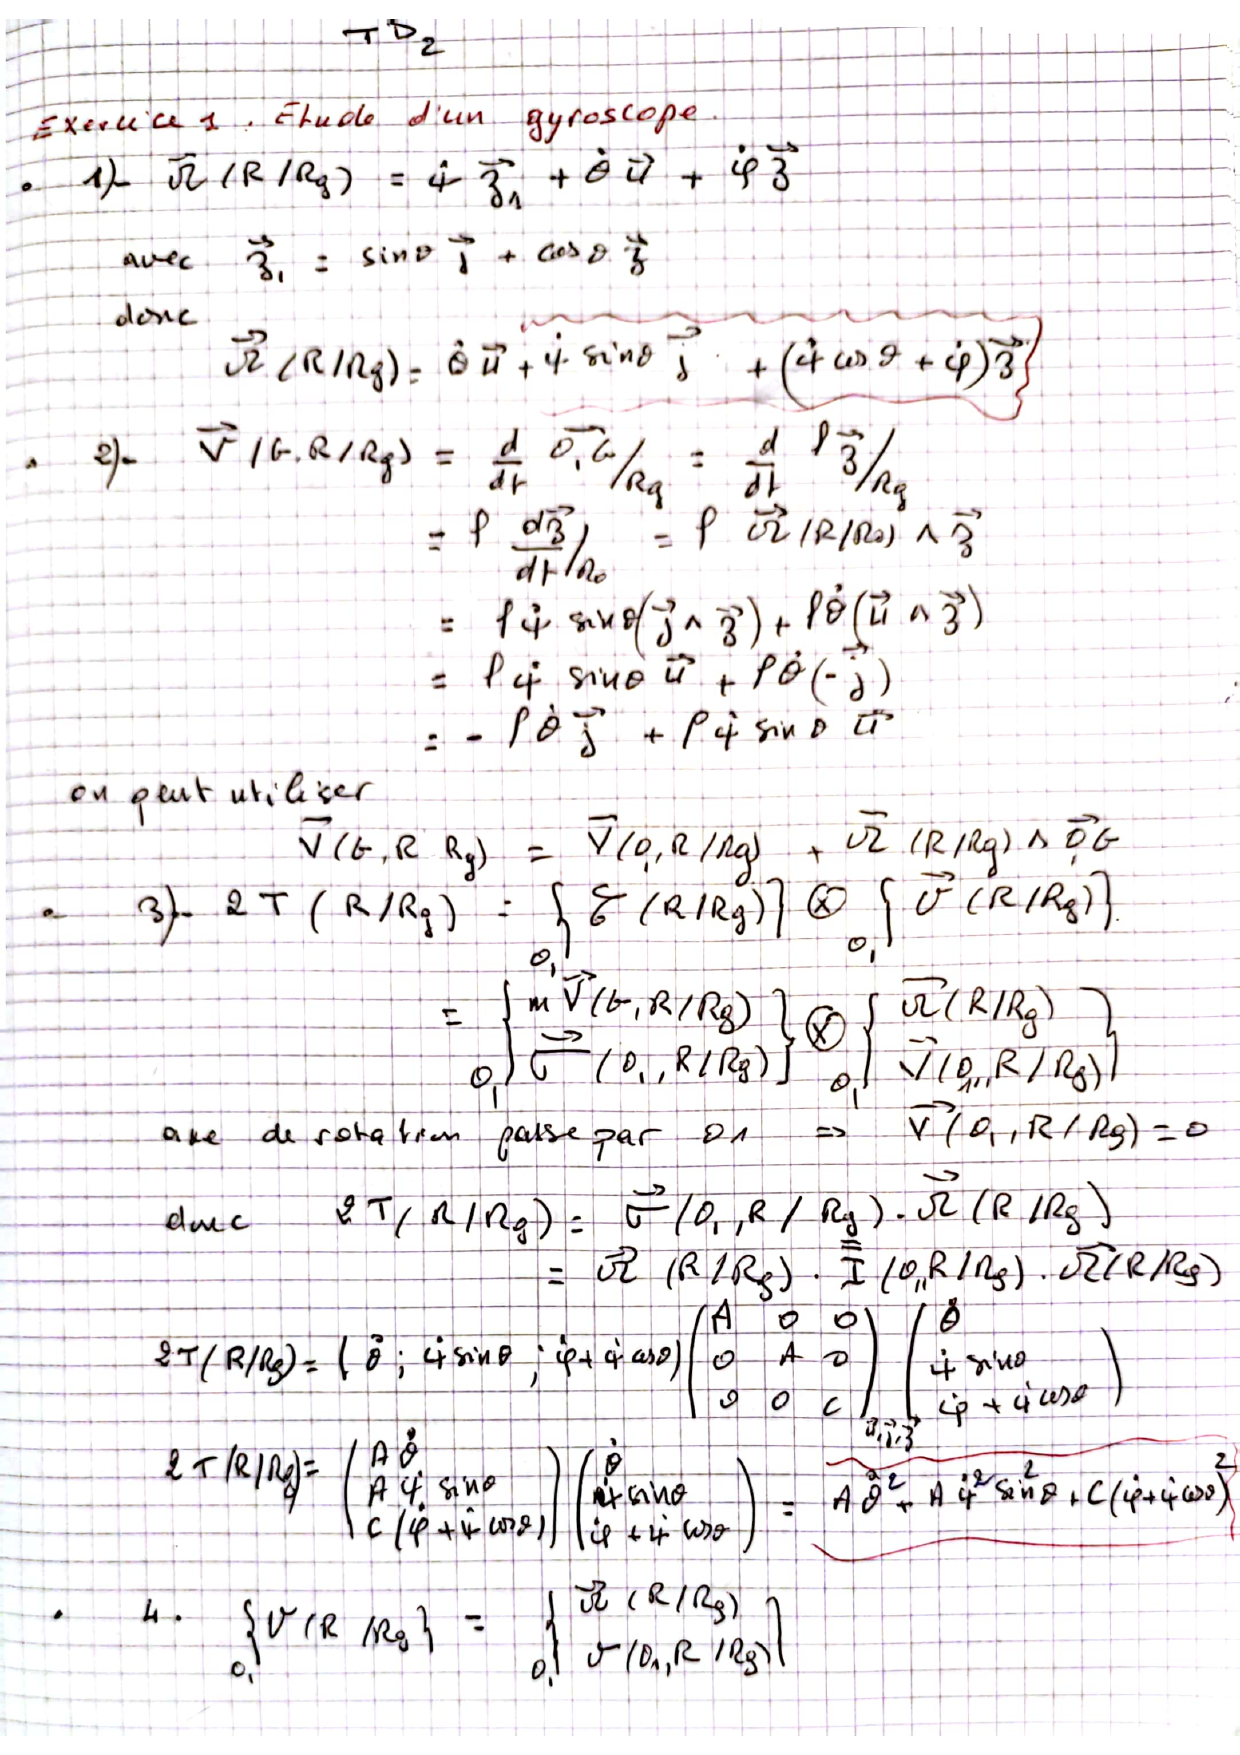 TD₂
Exercice 1. Etude d'un gyroscope.
• 1)- Ω⃗ (R/Rg) = ψ̇ z⃗₁ + θ̇ u⃗ + φ̇ z⃗
avec z⃗₁ = sinθ j⃗ + cosθ z⃗
donc
Ω⃗ (R/Rg) = θ̇ u⃗ + ψ̇ sinθ j⃗ + (ψ̇ cosθ + φ̇) z⃗
• 2)- V⃗ (G,R/Rg) = d/dt O₁G⃗ /Rg = d/dt ρ z⃗ /Rg
= ρ dz⃗/dt /R₀ = ρ Ω⃗ (R/R₀) ∧ z⃗
= ρ ψ̇ sinθ (j⃗ ∧ z⃗) + ρ θ̇ (u⃗ ∧ z⃗)
= ρ ψ̇ sinθ u⃗ + ρ θ̇ (-j⃗)
= - ρ θ̇ j⃗ + ρ ψ̇ sinθ u⃗
on peut utiliser
V⃗ (G,R Rg) = V⃗ (O₁,R/Rg) + Ω⃗ (R/Rg) ∧ O₁G⃗
• 3)- 2T (R/Rg) = O₁{ 𝒞 (R/Rg)} ⊗ O₁{ 𝒱⃗ (R/Rg)}.
= O₁{ m V⃗ (G,R/Rg) ; σ⃗ (O₁,R/Rg) } ⊗ O₁{ Ω⃗ (R/Rg) ; V⃗ (O₁,R/Rg) }
axe de rotation passe par O1 => V⃗ (O₁,R/Rg) = 0
donc 2T(R/Rg) = σ⃗ (O₁,R/Rg) . Ω⃗ (R/Rg)
= Ω⃗ (R/Rg) . I̿ (O₁,R/Rg) . Ω⃗ (R/Rg)
2T(R/Rg) = (θ̇ ; ψ̇ sinθ ; φ̇ + ψ̇ cosθ) (A 0 0 ; 0 A 0 ; 0 0 C) u⃗,j⃗,z⃗ (θ̇ ; ψ̇ sinθ ; φ̇ + ψ̇ cosθ)
2T(R/Rg) = (A θ̇ ; A ψ̇ sinθ ; C (φ̇ + ψ̇ cosθ)) (θ̇ ; ψ̇ sinθ ; φ̇ + ψ̇ cosθ) = A θ̇² + A ψ̇² sin²θ + C (φ̇ + ψ̇ cosθ)²
• 4. O₁{ V (R/Rg } = O₁{ Ω⃗ (R/Rg) ; v (O₁,R/Rg) }